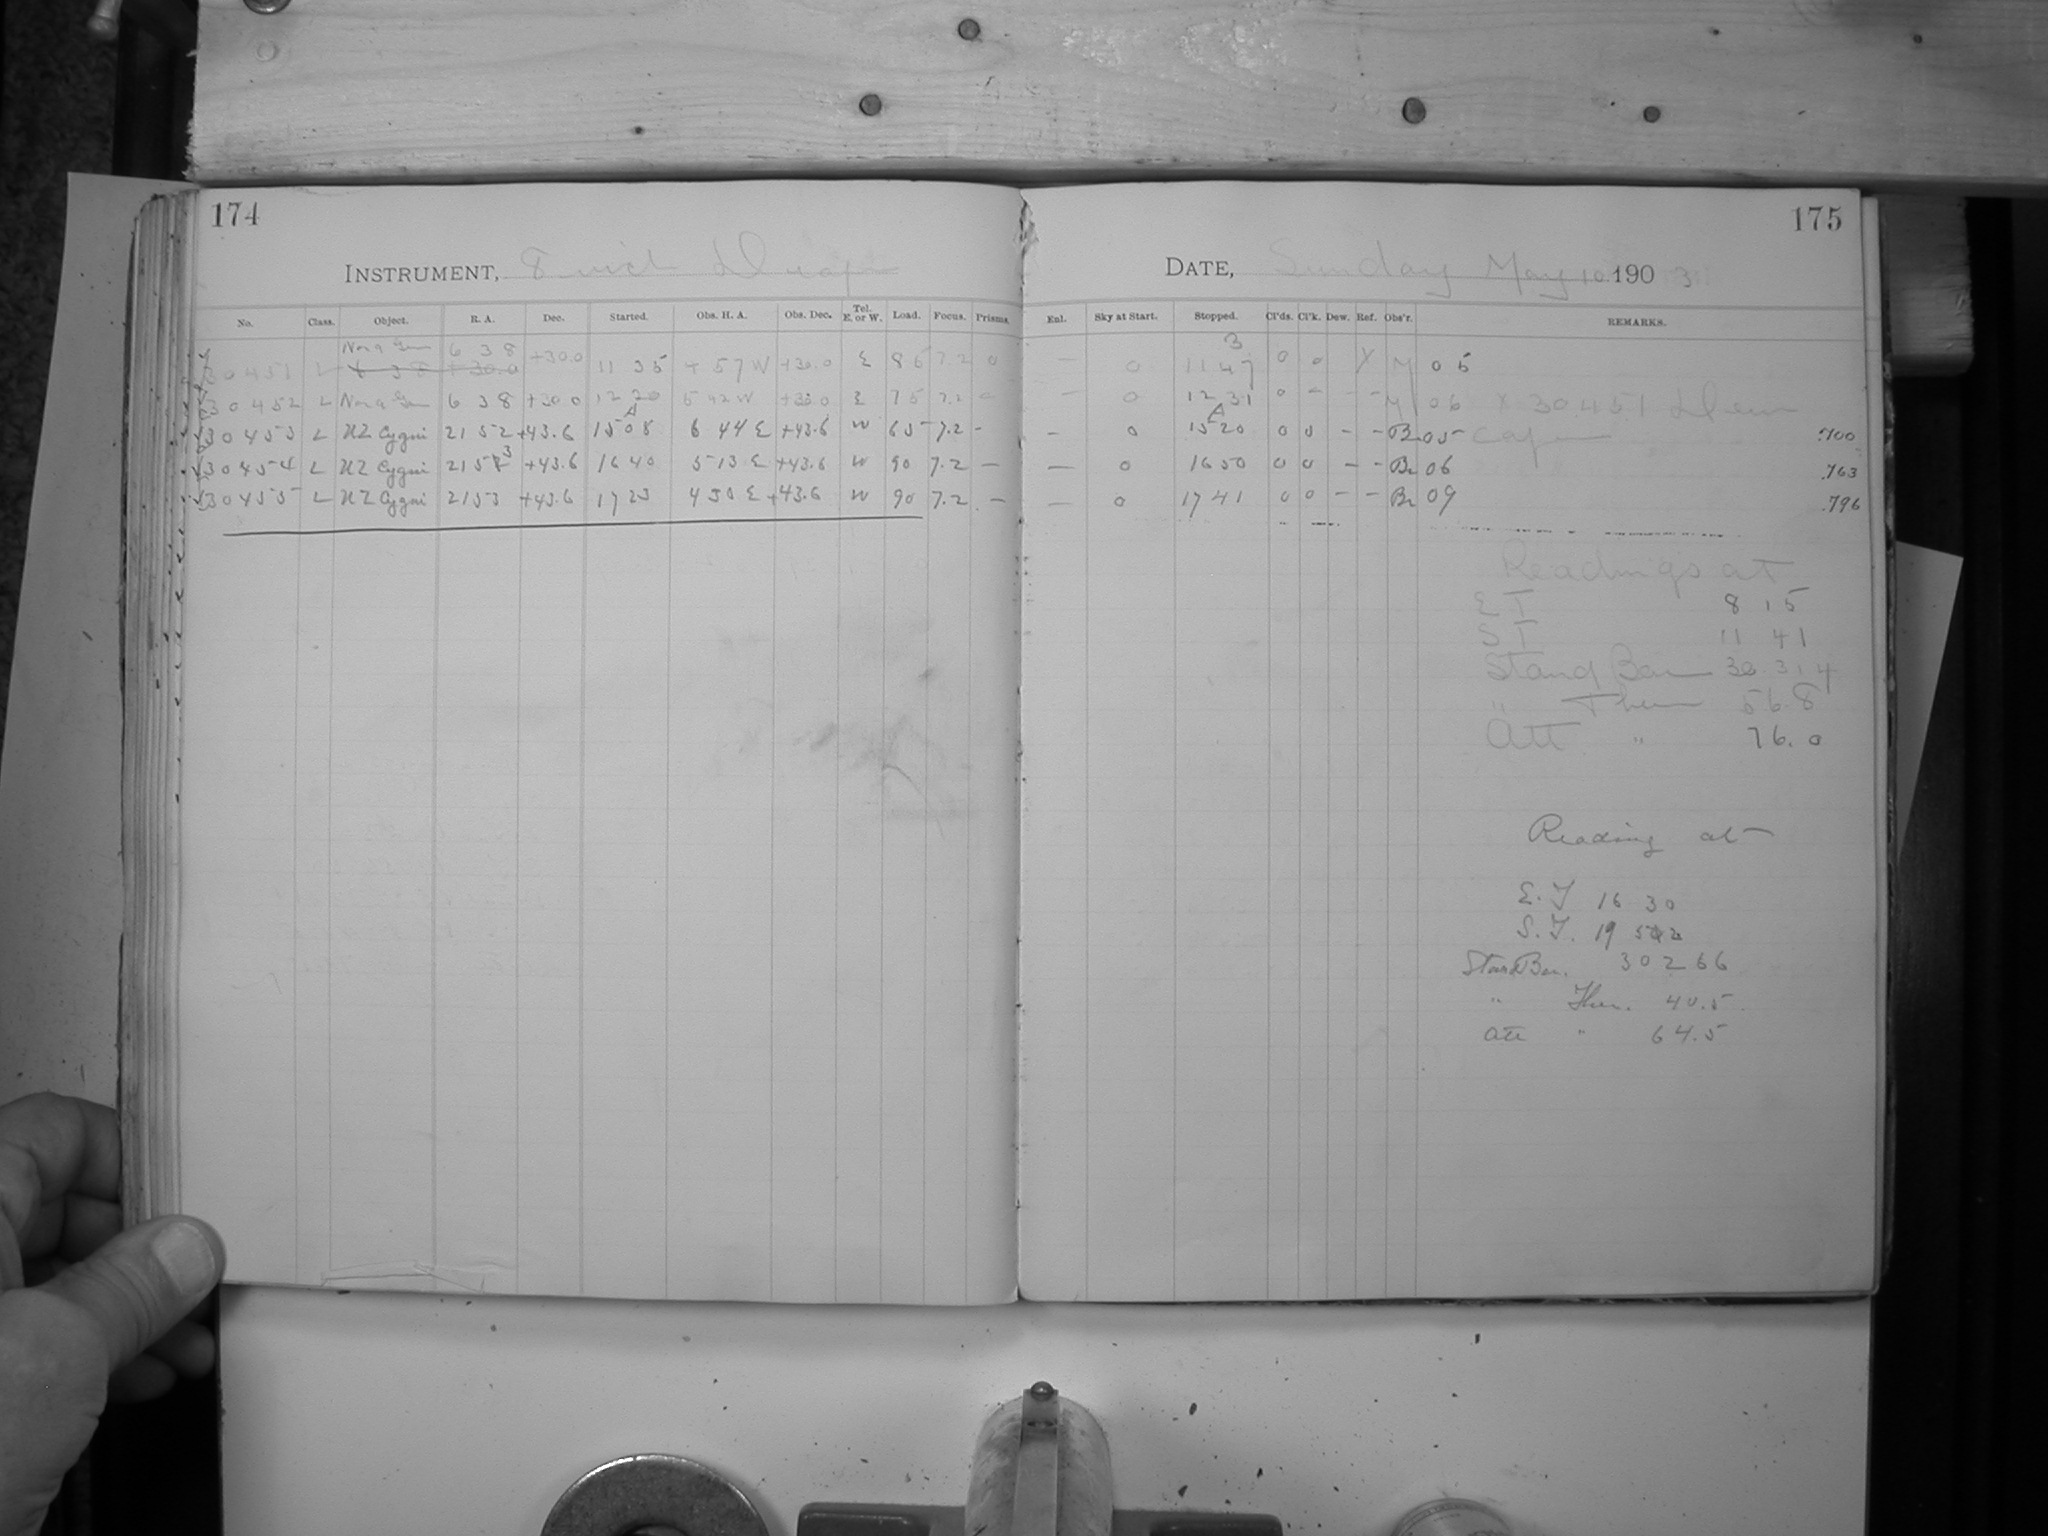 174
175
INSTRUMENT, 8 inch Draper
DATE, Sunday May 10 1903
No. Class. Object. R. A. Dec. Started. Obs. H. A. Obs. Dec. Tel. E. or W. Load. Focus. Prisms. Enl. Sky at Start. Stopped. Cl'ds. Cl'k. Dew. Ref. Obs'r. REMARKS.
Nova Gem 6 38 +30.0 3
30451 L 11 35 +30.0 E 86 7.2 0 – 0 11 47 0 0 X M 05
30452 L Nova Gem 6 38 +30.0 12 20 5 42 W +30.0 E 75 7.2 – 0 12 31 0 – – – M 06 X 30451 Dew
30453 L UZ Cygni 21 52 +43.6 15 08 6 44 E +43.6 W 65 7.2 – – 0 15 20 0 0 – – Br 05 cap .700
30454 L UZ Cygni 21 53 +43.6 16 40 5 13 E +43.6 W 90 7.2 – – 0 16 50 0 0 – – Br 06 .763
30455 L UZ Cygni 21 53 +43.6 17 23 4 30 E +43.6 W 90 7.2 – – 0 17 41 0 0 – – Br 09 .796
Readings at
E T 8 15
S T 11 41
Stand Bar 30 314
" Ther 56.8
Att " 76.0
Reading at
E. T 16 30
S. T. 19
Stand Bar. 30 266
" Ther. 40.5
Att " 64.5